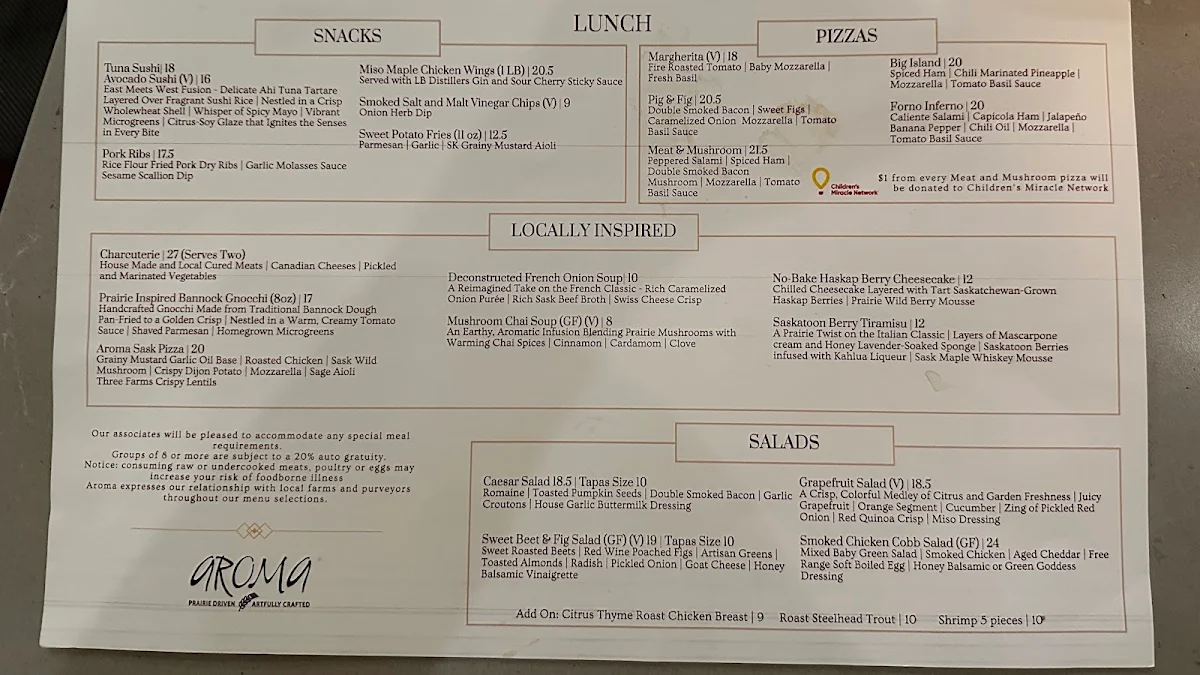 LUNCH
SNACKS
Tuna Sushi| 18
Avocado Sushi (V) | 16
East Meets West Fusion - Delicate Ahi Tuna Tartare
Layered Over Fragrant Sushi Rice | Nestled in a Crisp
Wholewheat Shell | Whisper of Spicy Mayo | Vibrant
Microgreens | Citrus-Soy Glaze that Ignites the Senses
in Every Bite
Pork Ribs | 17.5
Rice Flour Fried Pork Dry Ribs | Garlic Molasses Sauce
Sesame Scallion Dip
Miso Maple Chicken Wings (1 LB) | 20.5
Served with LB Distillers Gin and Sour Cherry Sticky Sauce
Smoked Salt and Malt Vinegar Chips (V) | 9
Onion Herb Dip
Sweet Potato Fries (11 oz) | 12.5
Parmesan | Garlic | SK Grainy Mustard Aioli
PIZZAS
Margherita (V) | 18
Fire Roasted Tomato | Baby Mozzarella |
Fresh Basil
Pig & Fig | 20.5
Double Smoked Bacon | Sweet Figs |
Caramelized Onion Mozzarella | Tomato
Basil Sauce
Meat & Mushroom | 21.5
Peppered Salami | Spiced Ham |
Double Smoked Bacon
Mushroom | Mozzarella | Tomato
Basil Sauce
Big Island | 20
Spiced Ham | Chili Marinated Pineapple |
Mozzarella | Tomato Basil Sauce
Forno Inferno | 20
Caliente Salami | Capicola Ham | Jalapeño
Banana Pepper | Chili Oil | Mozzarella |
Tomato Basil Sauce
Children's
Miracle Network
$1 from every Meat and Mushroom pizza will
be donated to Children's Miracle Network
LOCALLY INSPIRED
Charcuterie | 27 (Serves Two)
House Made and Local Cured Meats | Canadian Cheeses | Pickled
and Marinated Vegetables
Prairie Inspired Bannock Gnocchi (8oz) | 17
Handcrafted Gnocchi Made from Traditional Bannock Dough
Pan-Fried to a Golden Crisp | Nestled in a Warm, Creamy Tomato
Sauce | Shaved Parmesan | Homegrown Microgreens
Aroma Sask Pizza | 20
Grainy Mustard Garlic Oil Base | Roasted Chicken | Sask Wild
Mushroom | Crispy Dijon Potato | Mozzarella | Sage Aioli
Three Farms Crispy Lentils
Deconstructed French Onion Soup| 10
A Reimagined Take on the French Classic - Rich Caramelized
Onion Purée | Rich Sask Beef Broth | Swiss Cheese Crisp
Mushroom Chai Soup (GF) (V) | 8
An Earthy, Aromatic Infusion Blending Prairie Mushrooms with
Warming Chai Spices | Cinnamon | Cardamom | Clove
No-Bake Haskap Berry Cheesecake | 12
Chilled Cheesecake Layered with Tart Saskatchewan-Grown
Haskap Berries | Prairie Wild Berry Mousse
Saskatoon Berry Tiramisu | 12
A Prairie Twist on the Italian Classic | Layers of Mascarpone
cream and Honey Lavender-Soaked Sponge | Saskatoon Berries
infused with Kahlua Liqueur | Sask Maple Whiskey Mousse
Our associates will be pleased to accommodate any special meal
requirements.
Groups of 8 or more are subject to a 20% auto gratuity.
Notice: consuming raw or undercooked meats, poultry or eggs may
increase your risk of foodborne illness
Aroma expresses our relationship with local farms and purveyors
throughout our menu selections.
AROMA
PRAIRIE DRIVEN ARTFULLY CRAFTED
SALADS
Caesar Salad 18.5 | Tapas Size 10
Romaine | Toasted Pumpkin Seeds | Double Smoked Bacon | Garlic
Croutons | House Garlic Buttermilk Dressing
Sweet Beet & Fig Salad (GF) (V) 19 | Tapas Size 10
Sweet Roasted Beets | Red Wine Poached Figs | Artisan Greens |
Toasted Almonds | Radish | Pickled Onion | Goat Cheese | Honey
Balsamic Vinaigrette
Grapefruit Salad (V) | 18.5
A Crisp, Colorful Medley of Citrus and Garden Freshness | Juicy
Grapefruit | Orange Segment | Cucumber | Zing of Pickled Red
Onion | Red Quinoa Crisp | Miso Dressing
Smoked Chicken Cobb Salad (GF) | 24
Mixed Baby Green Salad | Smoked Chicken | Aged Cheddar | Free
Range Soft Boiled Egg | Honey Balsamic or Green Goddess
Dressing
Add On: Citrus Thyme Roast Chicken Breast | 9 Roast Steelhead Trout | 10 Shrimp 5 pieces | 10